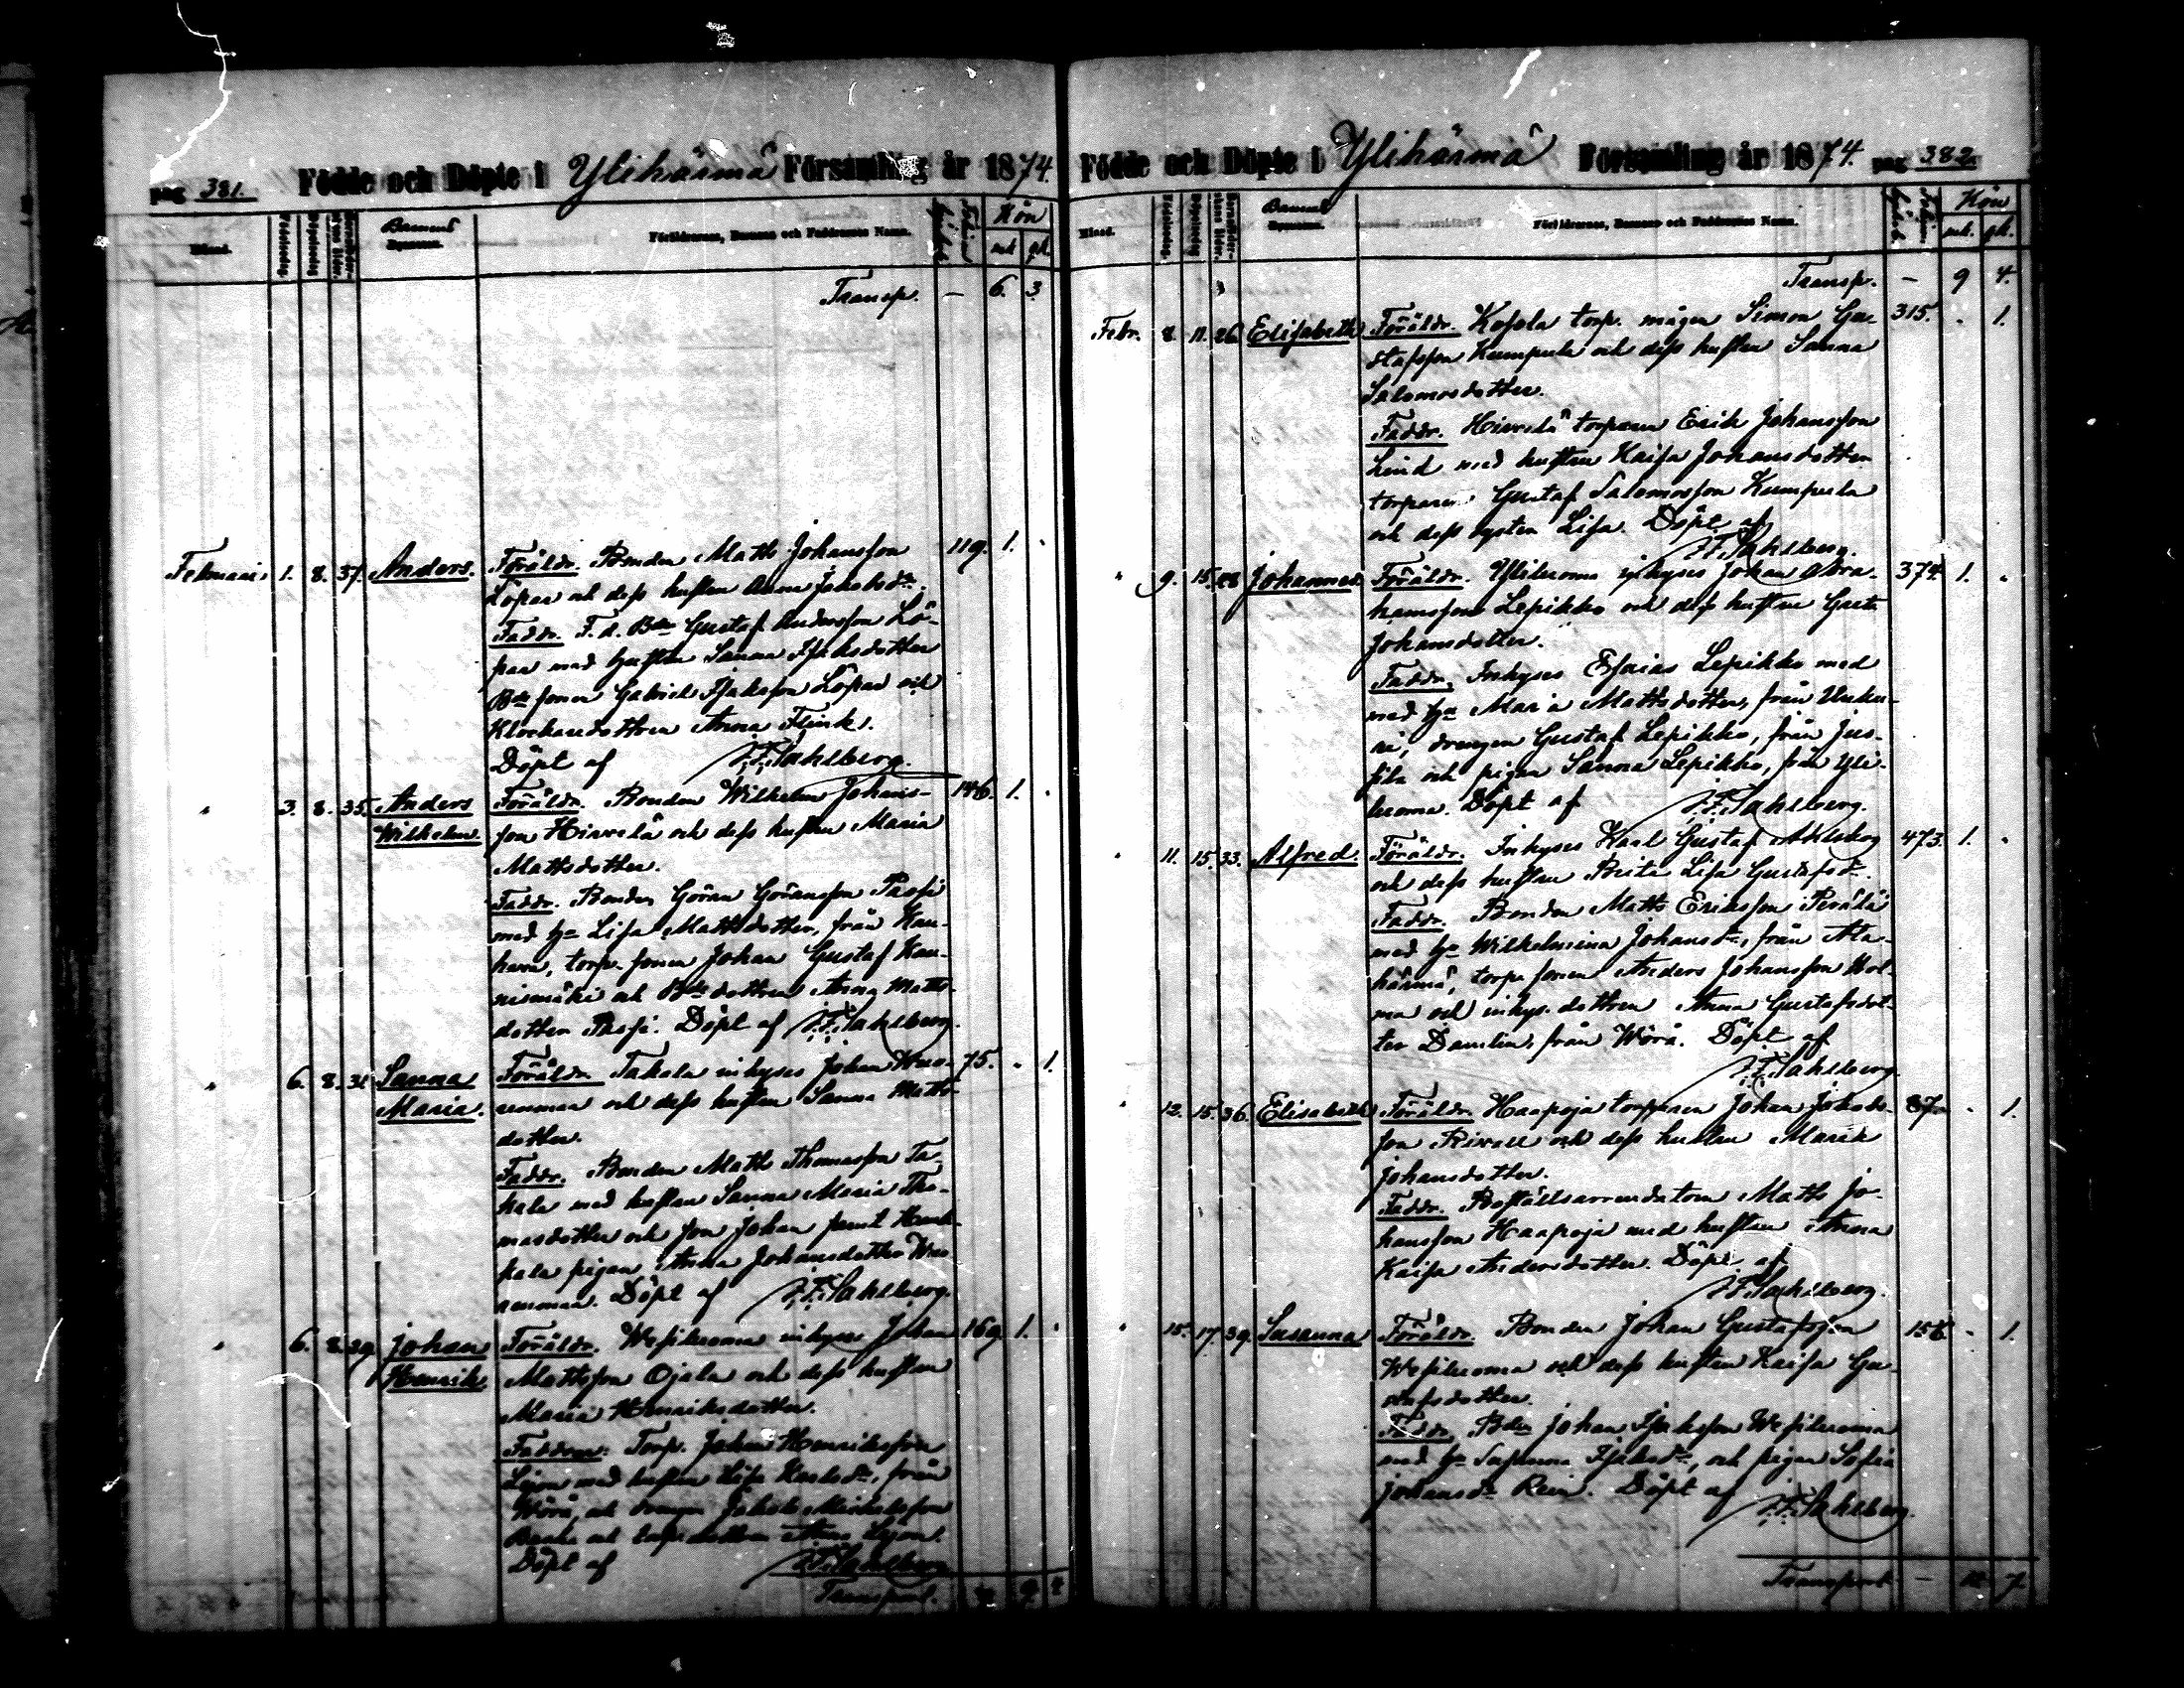 pag 381. Födde och Döpte i Ylihärmä Församling år 1874.
Månad. Födelsedag Döpelsedag Barnets Dopnamn. Föräldrarnes, Barnens och Faddrarnes Namn. Kön
mk. qk.
Transp. — 6. 3.
Februari 1. 8. 37. Anders. Föräldr. Bonden Matts Johansson 119. 1.
Löpar och dess hustru Anna Jakobsdr.
Faddr. F. d. Bde Gustaf Andersson Lö-
par med hustru Sanna Isaksdotter
Bde sonen Gabriel Isaksson Löpar och
Klockaredottren Anna Flink.
Döpt af J. F. Sahlberg.
" 3. 8. 35. Anders Föräldr. Bonden Wilhelm Johans- 146. 1.
Wilhelm son Hirvelä och dess hustru Maria
Mattsdotter.
Faddr. Bonden Göran Göransson Passi
med h. Lisa Mattsdotter, från Kau-
hava, torp. sonen Johan Gustaf Kau-
nismäki och Bde dottren Anna Matts-
dotter Passi. Döpt af J. F. Sahlberg.
" 6. 8. 31. Sanna Föräldr. Takala inhyses Johan 75. " 1.
Maria. och dess hustru Sanna Matts-
dotter.
Faddr. Bonden Matts Thomasson Ta-
kala med hustru Sanna Maria Tho-
masdotter och son Johan samt
pigan Anna Johansdotter
Döpt af J. F. Sahlberg.
" 6. 8. 29. Johan Föräldr. Wesiluoma inhyses Johan 169. 1.
Henrik Mattsson Ojala och dess hustru
Maria Henriksdotter.
Faddrar. Torp. Johan Henriksson
Lejon med hustru Lisa från
Wörå, och drengen Jakob Mickelsson
och torp. dottren Anna Lejon.
Döpt af J. F. Sahlberg
Transport. — 9. 4
Födde och Döpte i Ylihärmä Församling år 1874. pag 382.
Månad. Födelsedag Döpelsedag Barnets Dopnamn. Föräldrarnes, Barnens och Faddrarnes Namn. Kön
mk. qk.
Transp. — 9 4.
Febr. 8. 11. 26. Elisabeth Föräldr. Kosola torp. mågen Simon Gu- 315. " 1.
stafsson Kumpula och dess hustru Sanna
Salomosdotter.
Faddr. Hirvelä torparen Erik Johansson
Lind med hustru Kaisa Johansdotter
torparen Gustaf Salomosson Kumpula
och dess syster Lisa. Döpt af
J. F. Sahlberg.
" 9. 15. 28 Johannes. Föräldr. Yliluoma inhyses Johan Abra- 374. 1. "
hamsson Lepikko och dess hustru Greta
Johansdotter.
Faddr. Inhyses Esaias Lepikko med
med h. Maria Mattsdotter, från
drengen Gustaf Lepikko, från Jus-
sila och pigan Sanna Lepikko, från Yli-
luoma. Döpt af J. F. Sahlberg.
" 11. 15. 33. Alfred. Föräldr. Inhyses Karl Gustaf Ahlskog 473. 1. "
och dess hustru Brita Lisa Gustafsdr.
Faddr. Bonden Matts Eriksson Perälä
med h. Wilhelmina Johansdr, från Ala-
härmä, torpe sonen Anders Johansson Hol-
ma och inhys. dottren Anna Gustafsdot-
ter Damlin, från Wörå. Döpt af
J. F. Sahlberg.
" 12. 15. 36. Elisabeth Föräldr. Haapoja torparen Johan Jakobs- 87. " 1.
son och dess hustru Maria
Johansdotter.
Faddr. Boställsarrendatorn Matts Jo-
hansson Haapoja med hustru Anna
Kaisa Andersdotter. Döpt af
J. F. Sahlberg.
" 15. 17. 39. Susanna Föräldr. Bonden Johan Gustafsson 156. " 1.
Wesiluoma och dess hustru Kaisa Gu-
stafsdotter.
Faddr. Bden Johan Isaksson Wesiluoma
med h. Susanna Isaksdr, och pigan Sofia
Johansdr Rein. Döpt af J. F. Sahlberg.
Transport — 7.